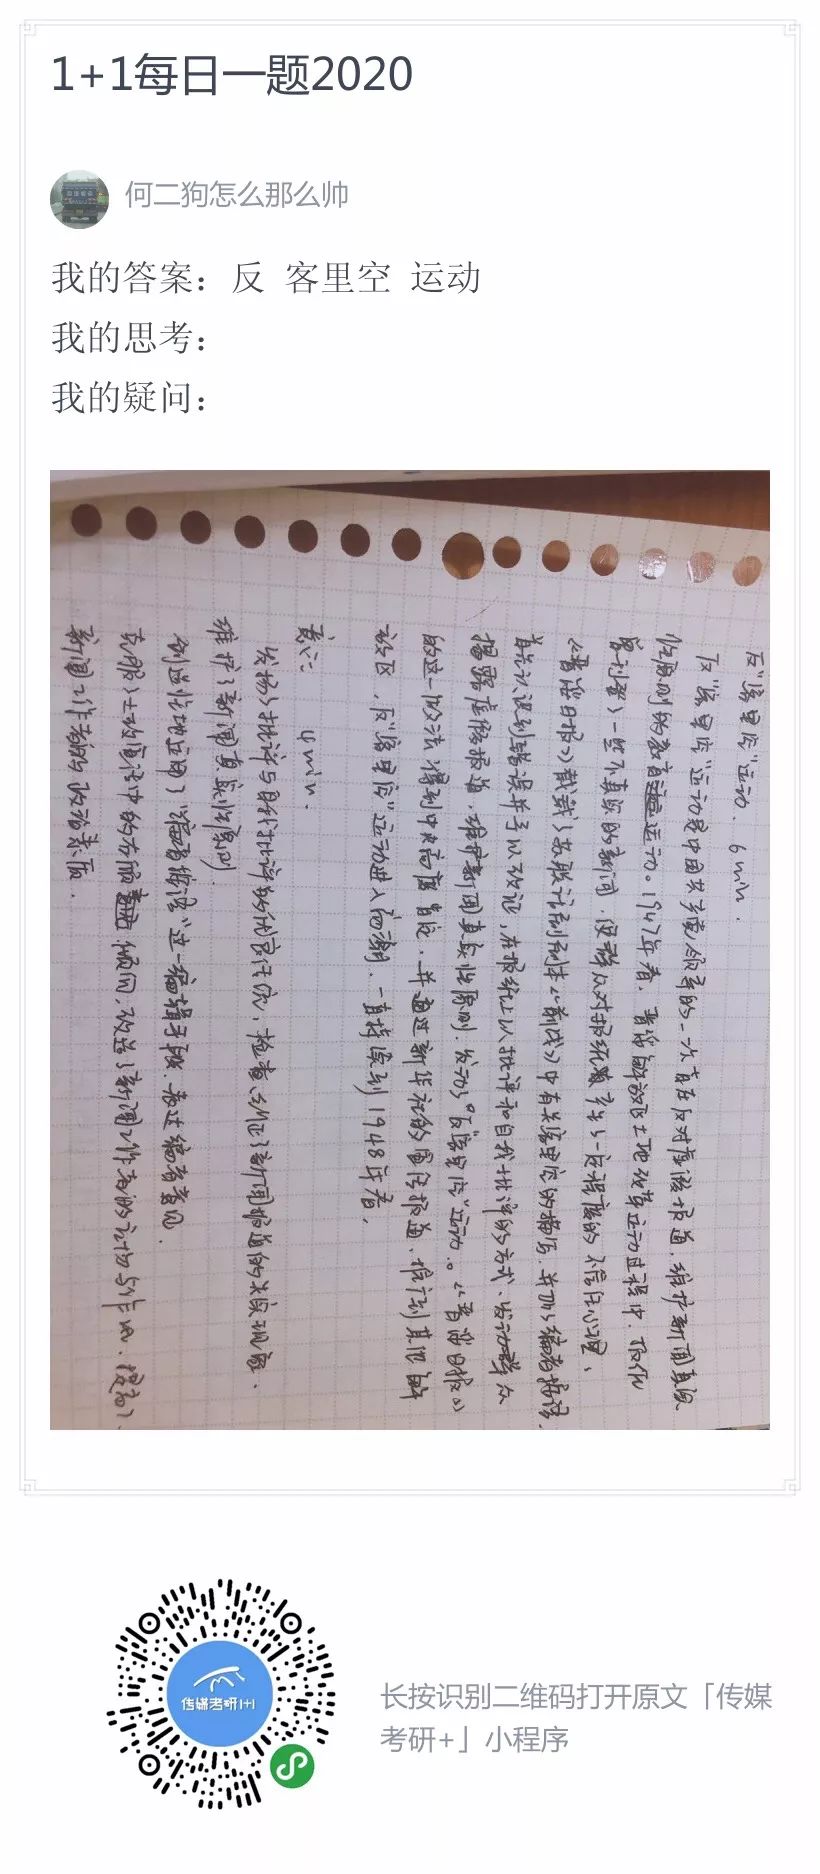 1+1每日一题2020
何二狗怎么那么帅
我的答案：反 客里空 运动
我的思考：
我的疑问：
反"客里空"运动. 6min.
反"客里空"运动是中国共产党领导的一次旨在反对虚假报道、维护新闻真实
性原则的教育运动。1947年春，晋绥解放区土地改革运动过程中，
客刊登了一些不真实的新闻，使群众对报纸产生了一定程度的不信任心理，
《晋绥日报》载了苏联讽刺剧《前线》中有关客里空的描写，并加了编者按语，
认识到错误并予以改正，在报纸上以批评和自我批评的方式、发动群众
揭露虚假报道，维护新闻真实性原则，发动了"反客里空"运动。《晋绥日报》
的这一做法得到中共高度肯定，并通过新华社的宣传报道，推行到其他解
放区，反"客里空"运动进入高潮，一直持续到1948年春，
意义： 4min.
发扬了批评与自我批评的优良作风，检查、纠正了新闻报道的失实现象，
维护了新闻真实性原则.
创造性地运用了"编者按语"这一编辑手段，表达编者意见.
克服了土改宣传中的右倾 倾向，改造了新闻工作者的 与作风，提高了
新闻工作者的政治素质.
传媒考研1+1
长按识别二维码打开原文「传媒
考研+」小程序